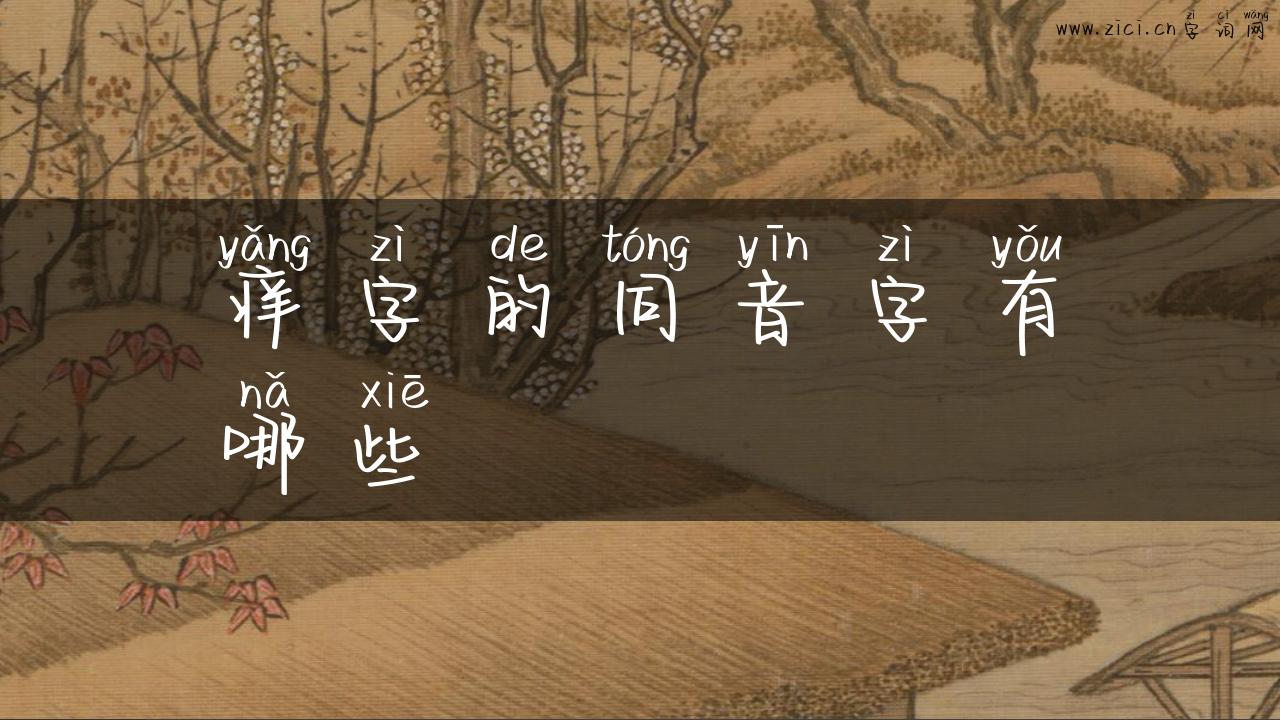 zì cí wǎng
www.zici.cn字词网
yǎng zì de tóng yīn zì yǒu
痒字的同音字有
nǎ xiē
哪些